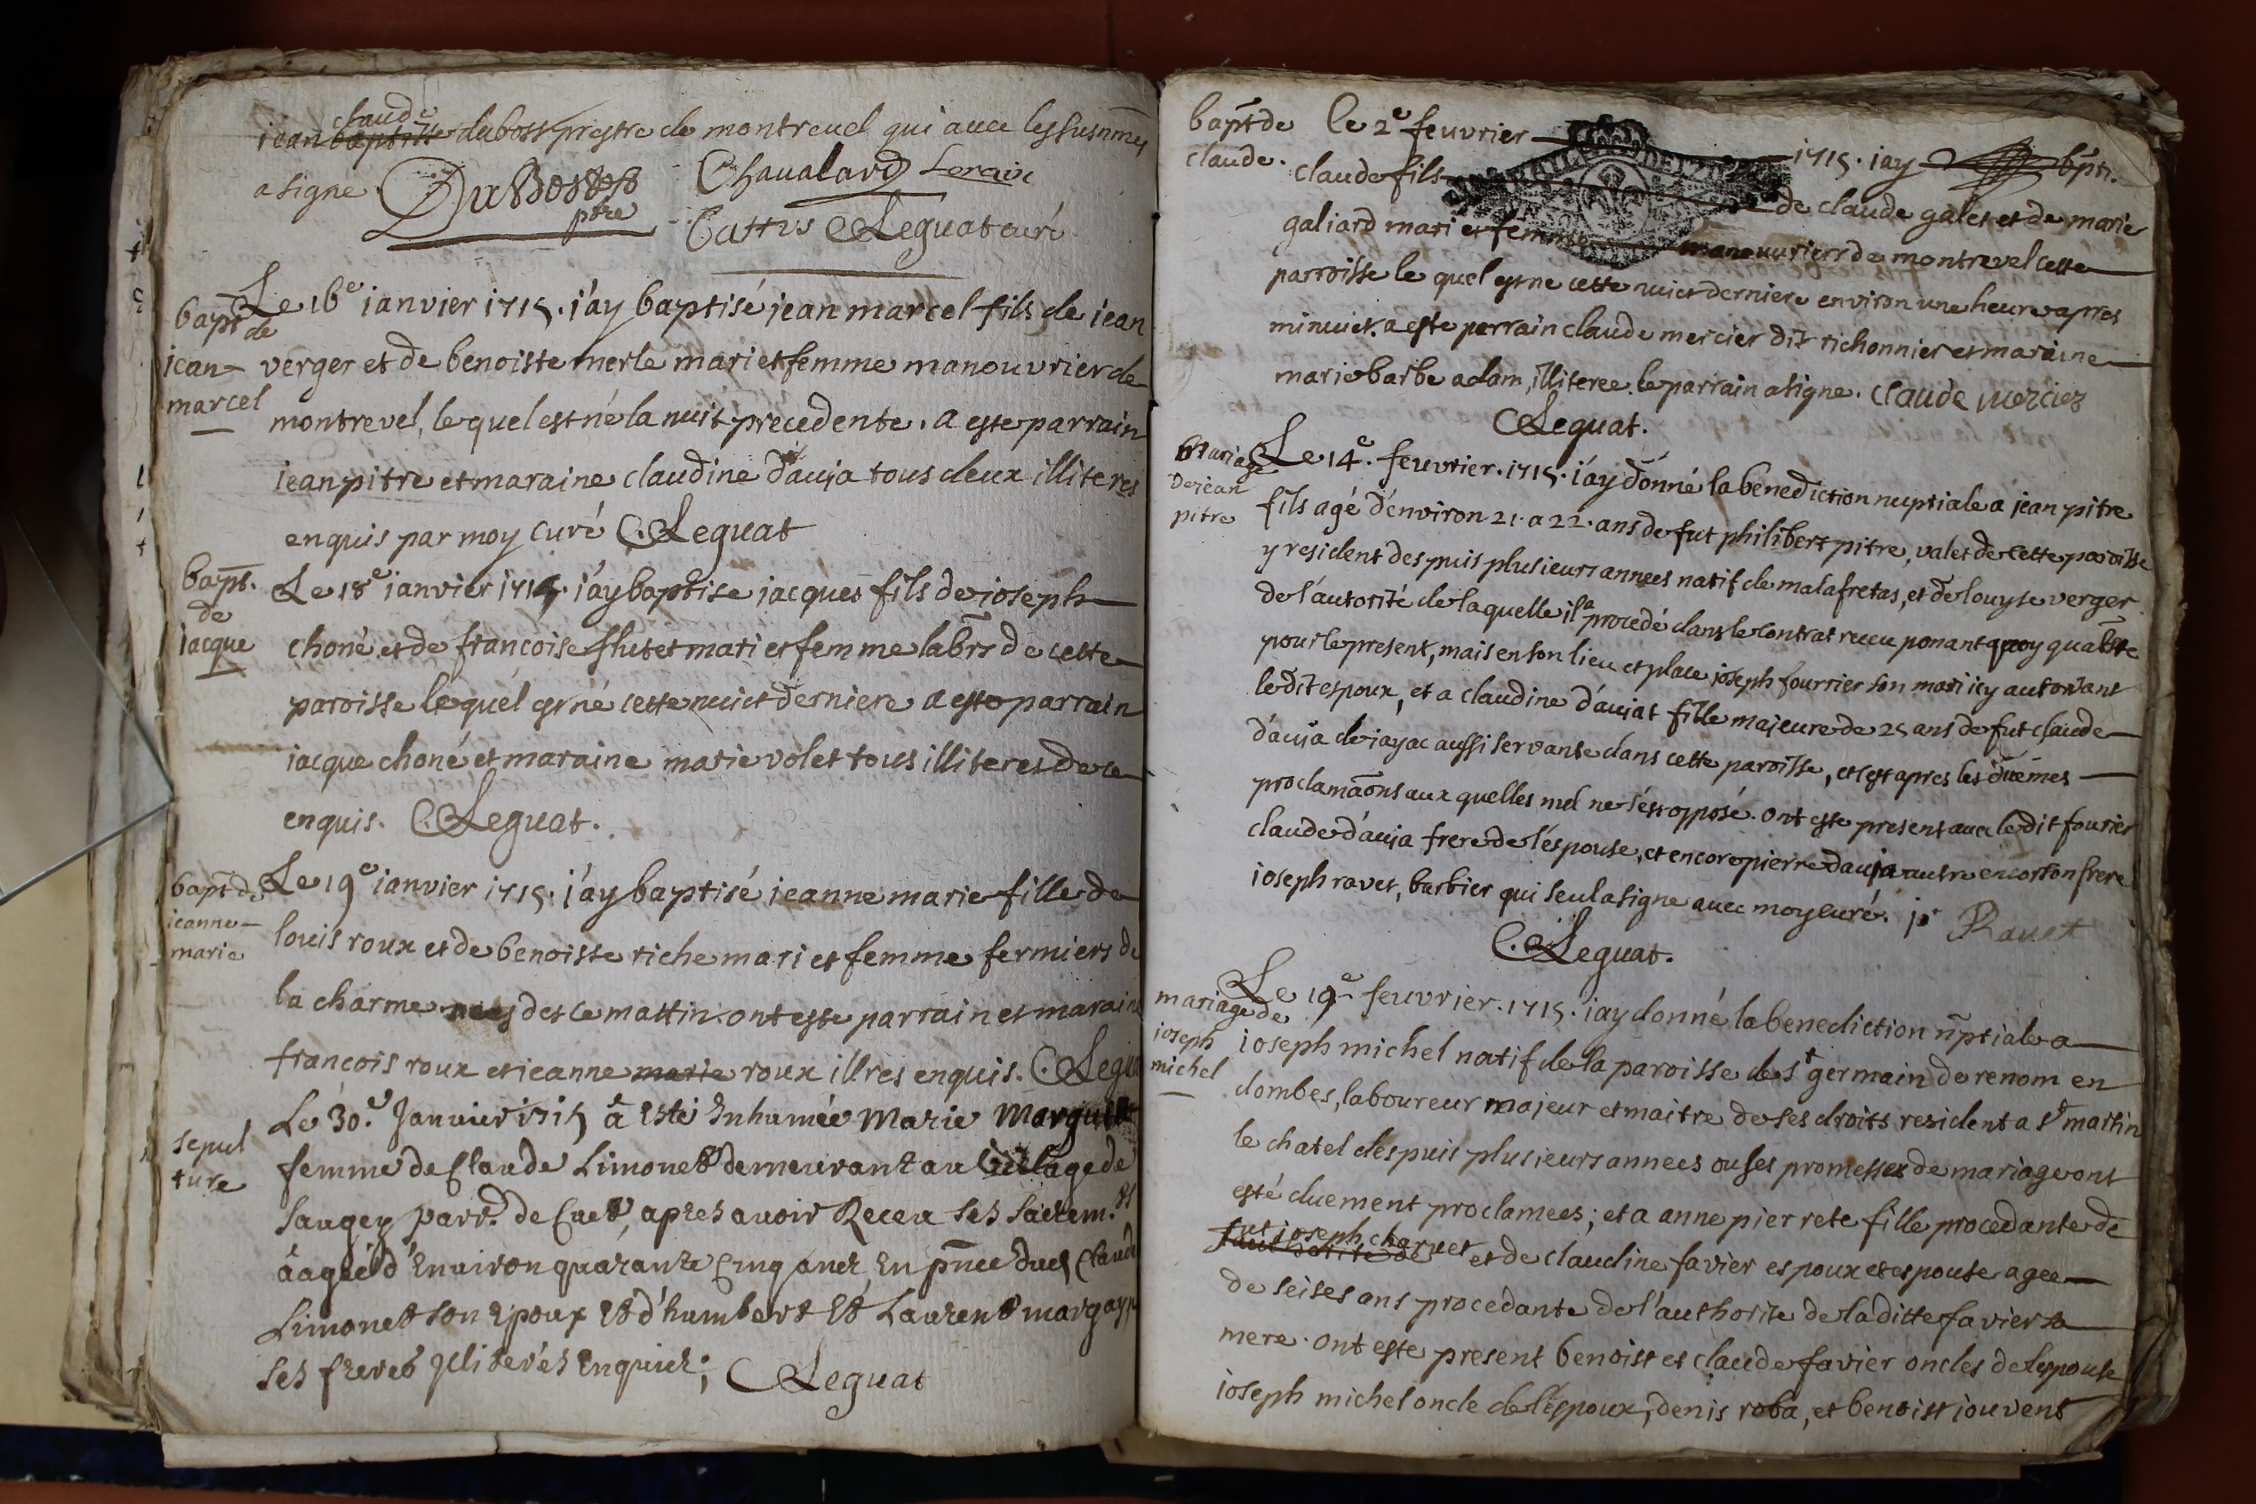 claude
jean baptiste dubost prestre de montreuel qui avec les susnmes
a signe Dubost ptre Chavalard Lorain
C. Leguat curé
bapt de
jean
marcel
Le 16e janvier 1715. j'ay baptisé jean marcel fils de jean
verger et de benoiste merle mari et femme manouvrier de
montrevel, le quel est né la nuit precedente. a este parrain
jean pitre et maraine claudine d'auja tous deux illiteres
enquis par moy curé C. Leguat
bapt.
de
jacque
Le 18e janvier 1715. j'ay baptise jacques fils de joseph
choné et de francoise flutet mari et femme labrs de cette
paroisse lequel est né cette nuict derniere a este parrain
jacque choné et maraine marie volet tous illiteres de ce
enquis. C. Leguat.
bapt de
jeanne
marie
Le 19e janvier 1715. j'ay baptisé jeanne marie fille de
louis roux et de benoiste riche mari et femme fermiers de
la charme nees des ce mattin. ont este parrain et maraine
francois roux et jeanne marie roux illres enquis. C. Legua
sepul
ture
Le 30e Janvier 1715 â Esté Inhumée Marie Marguit
femme de Claude Limonet demeurant au Village de
Saugey parr. de Cuet, apres avoir Receu Ses Sacrem.ts
âageé d'Environ quarante Cinq ans, En pnce dud Claude
Limonet Son Epoux Et d'humbert Et Laurent margayr
Ses freres Illiterés Enquies; C Leguat
bapt de
claude.
Le 2e feuvrier 1715. jay bpti.
claude fils de claude galet et de marie
galiard mari et femme manouurierr de montrevel cette
parroisse le quel est ne cette nuict derniere environ une heure apres
minuict. a este parrain claude mercier dit richonnier et maraine
marie barbe adam, illiteree. le parrain a signe. Claude Mercier
C Leguat.
Mariage
De jean
pitre
Le 14e. feuvrier. 1715. j'ay donné la benediction nuptiale a jean pitre
fils agé d'environ 21. a 22. ans de fut philibert pitre, valet de cette paroisse
y resident despuis plusieurs annees natif de malafretas, et de louyse verger
de l'autorité de laquelle il a procedé dans le contrat receu ponant quoy qu'abste
pour le present, mais en son lieu et place joseph fourrier son mari icy autorisant
le dit espoux, et a claudine d'aujat fille majeure de 25 ans de fut claude
d'auja de jayac aussi servante dans cette paroisse, et c'est apres les duemes
proclamaons aux quelles nul ne s'est opposé. ont este present avec le dit fourier
claude d'auja frere de l'espouse, et encore pierre d'auja autre encor son frere
joseph ravet, barbier qui seul a signe avec moy curé. jo Ravet
C. Leguat.
mariage de
joseph
michel
Le 19e feuvrier. 1715. j'ay donné la benediction nptiale a
joseph michel natif de la paroisse de st germain de renom en
dombes, laboureur majeur et maitre de ses droits resident a st martin
le chatel despuis plusieurs annees ou ses promesses de mariage ont
esté duement proclamees; et a anne pierrete fille procedante de
fut joseph charvet et de claudine favier espoux et espouse agee
de seises ans procedante de l'authorite de la ditte favier sa
mere. ont este present benoist et claude favier oncles de l'espouse
joseph michel oncle de l'espoux, denis roba, et benoist jouvent